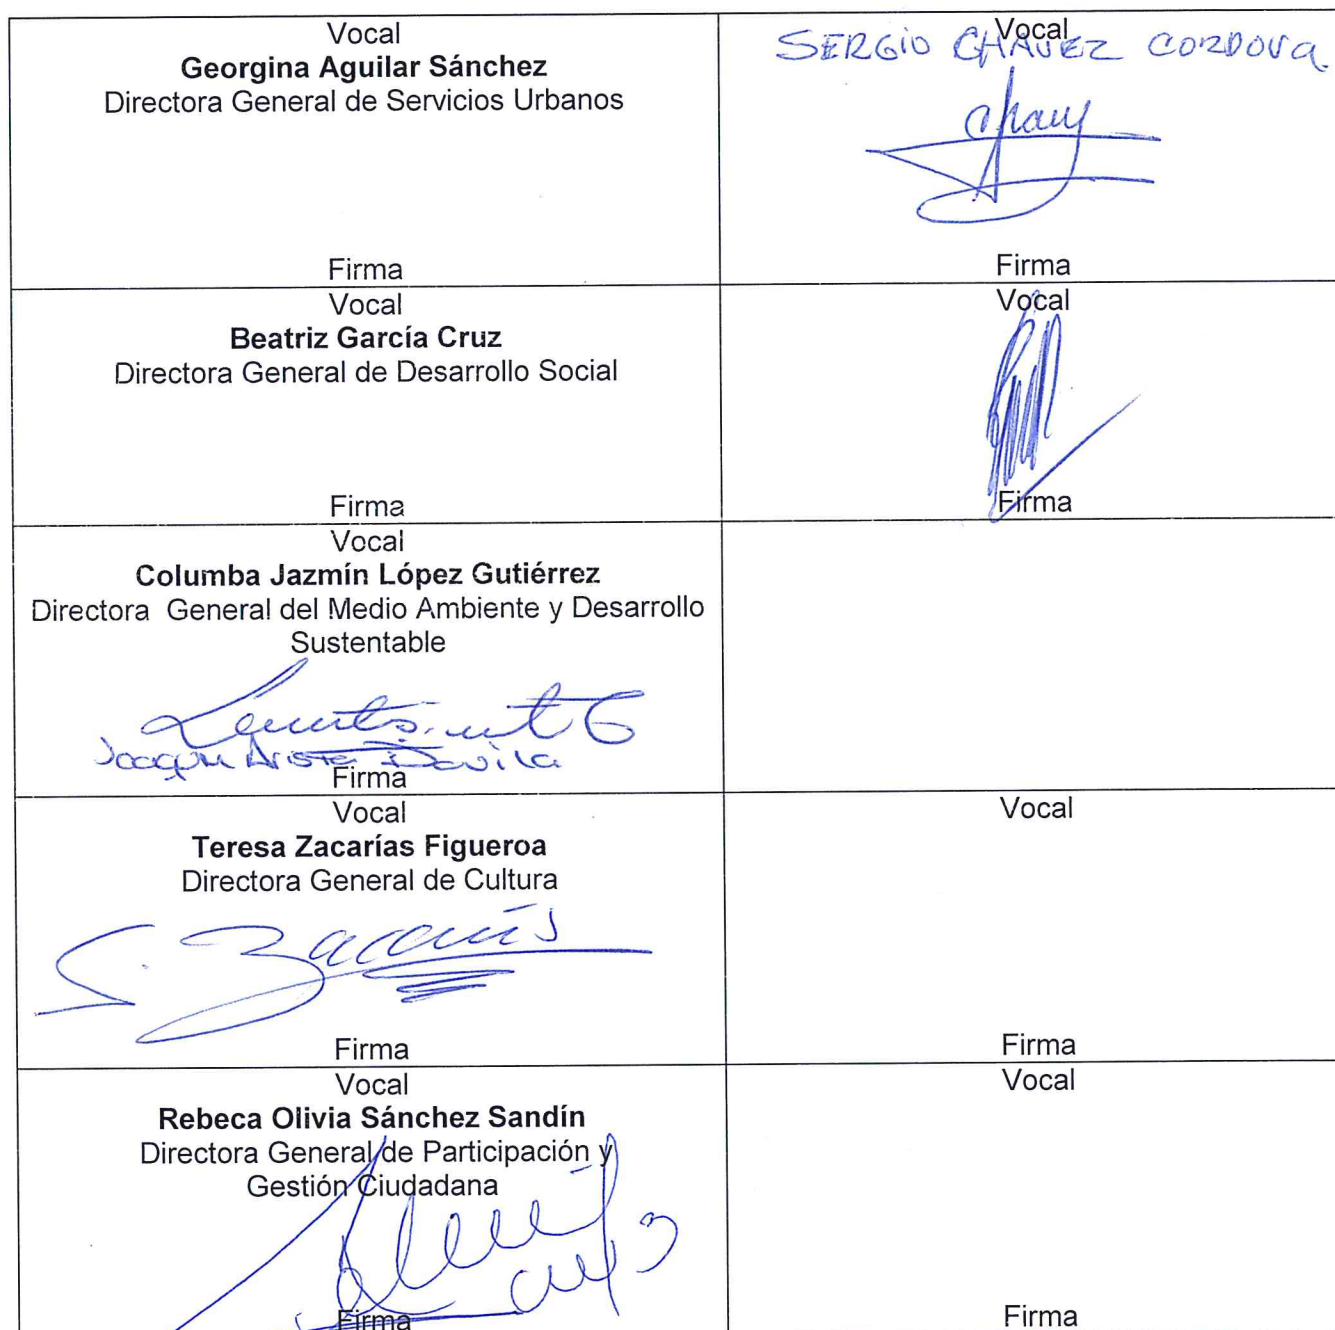 Vocal
Georgina Aguilar Sánchez
Directora General de Servicios Urbanos
Firma
Vocal
SERGIO CHAVEZ CORDOVA
Firma
Vocal
Beatriz García Cruz
Directora General de Desarrollo Social
Firma
Vocal
Firma
Vocal
Columba Jazmín López Gutiérrez
Directora General del Medio Ambiente y Desarrollo
Sustentable
Joaquin Arista Davila
Firma
Vocal
Teresa Zacarías Figueroa
Directora General de Cultura
Firma
Vocal
Firma
Vocal
Rebeca Olivia Sánchez Sandín
Directora General de Participación y
Gestión Ciudadana
Firma
Vocal
Firma